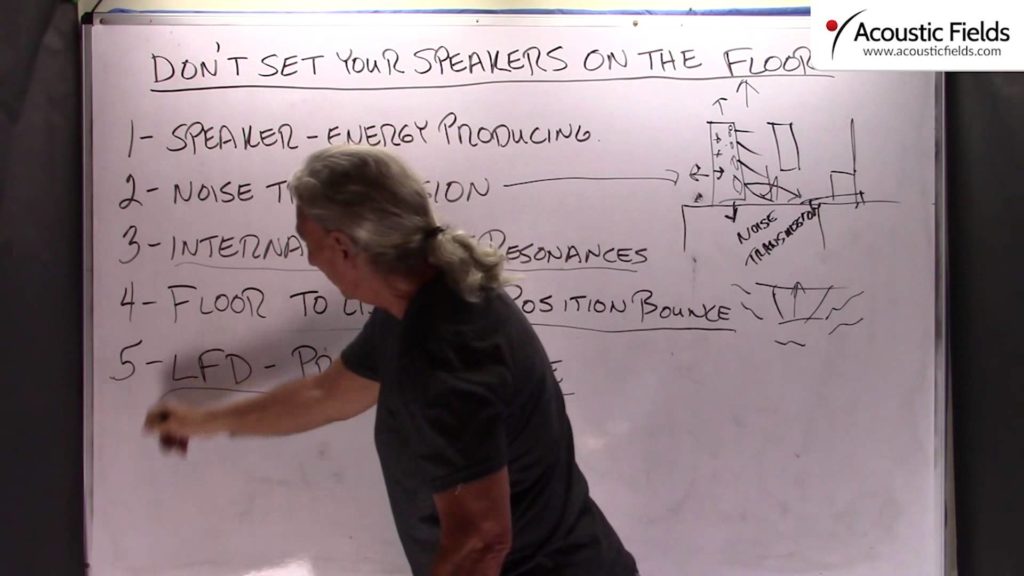 Acoustic Fields
www.acousticfields.com
DON'T SET YOUR SPEAKERS ON THE FLOOR
1- SPEAKER - ENERGY PRODUCING.
2- NOISE
3- INTERNA RESONANCES
4- FLOOR TO POSITION BOUNCE
5- LFD -
NOISE